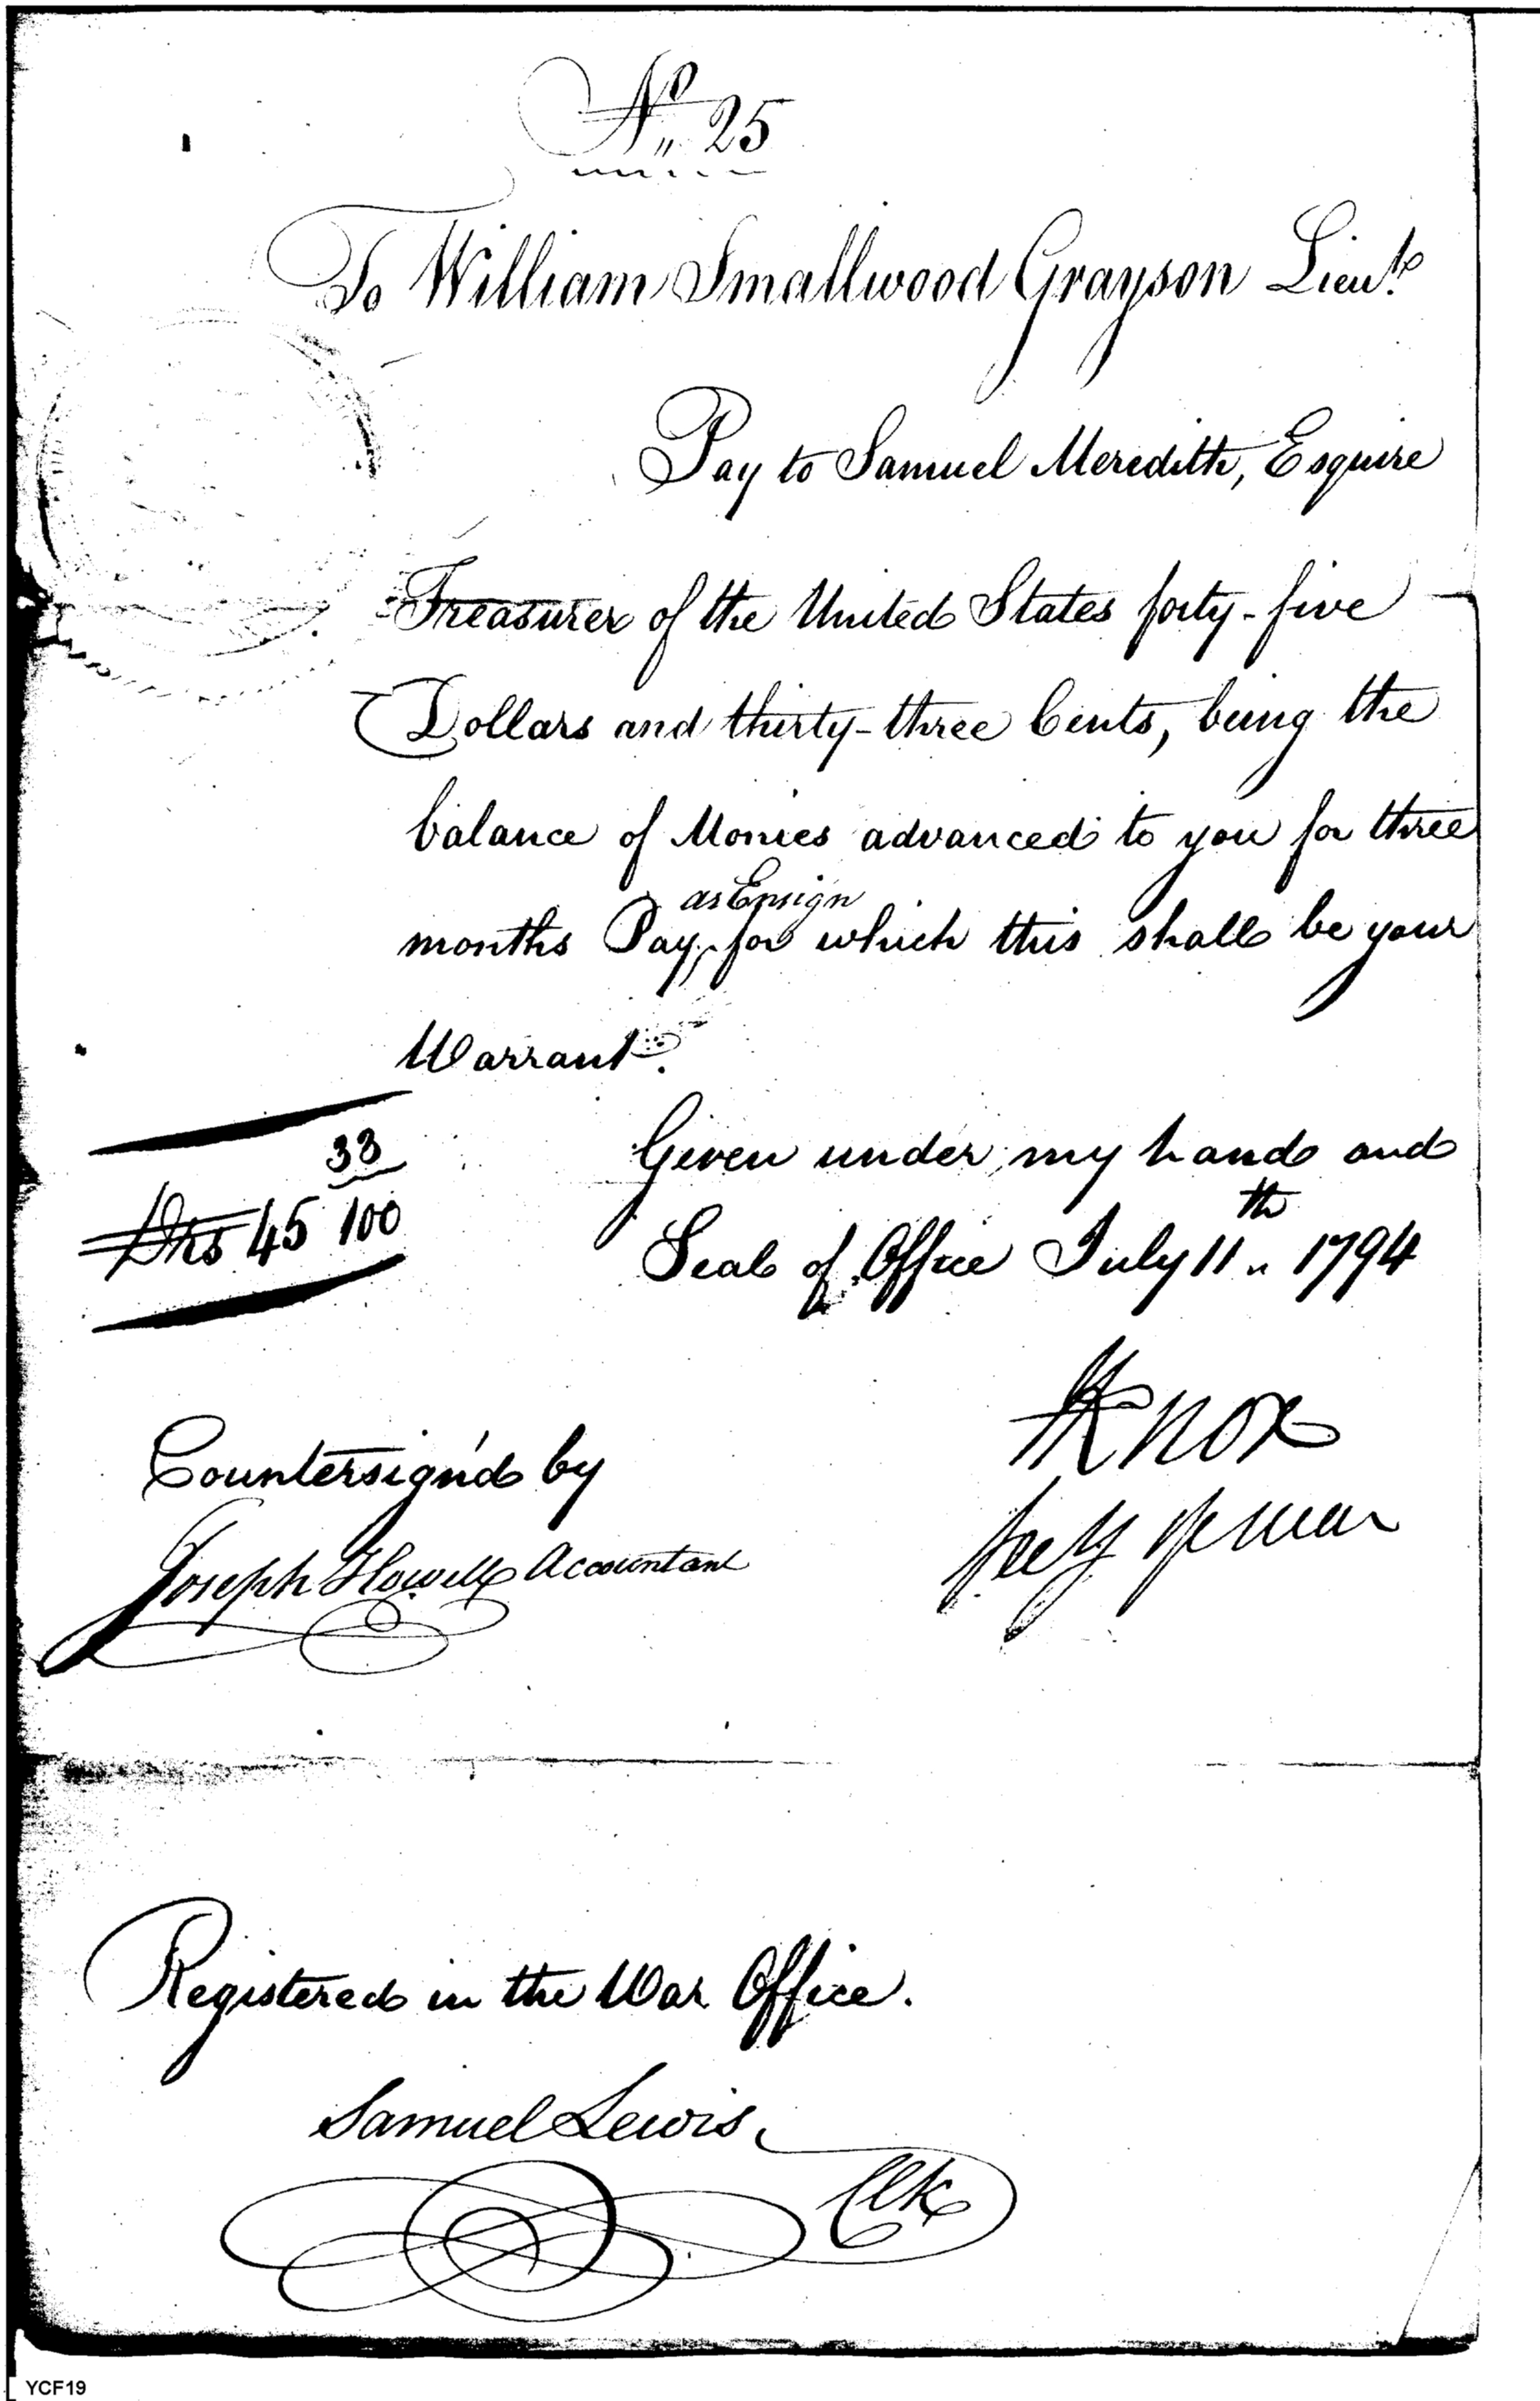 No 25
To William Smallwood Grayson Lieut.
Pay to Samuel Meredith, Esquire
Treasurer of the United States forty-five
Dollars and thirty-three Cents, being the
balance of Monies advanced to you for three
as Ensign
months Pay, for which this shall be your
Warrant.
Given under my hand and
Seal of Office July 11th 1794
33
Drs 45 100
HKnox
Secy of War
Countersign'd by
Joseph Howell Accountant
Registered in the War Office.
Samuel Lewis
Clk
YCF19